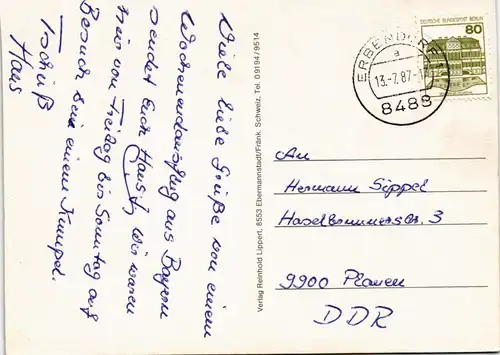 Viele liebe Grüße von einem
Wochenendausflug aus Bayern
sendet Euch Hausi, Wir waren
hier von Freitag bis Sonntag auf
Besuch bei einem Kumpel.
Tschüß
Haus
Verlag Reinhold Lippert, 8553 Ebermannstadt/Fränk. Schweiz. Tel. 09194/9514
DEUTSCHE BUNDESPOST BERLIN
80
ERBENDORF
a
13.-7.87-1
8488
An
Hermann Sippel
Haselbrunnerstr. 3
9900 Plauen
DDR